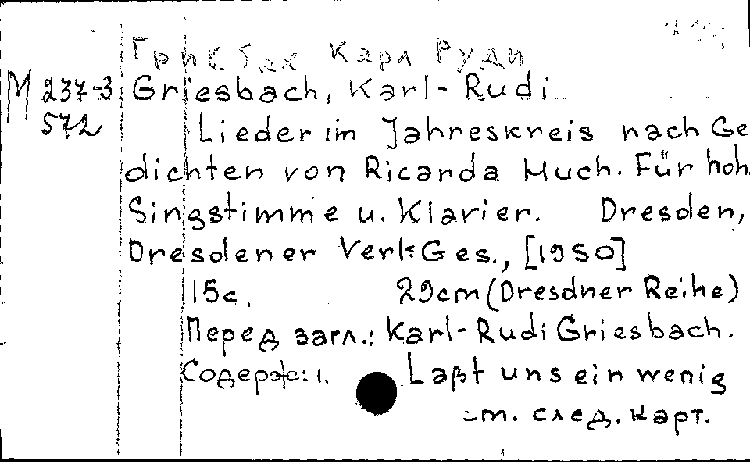 Грисбах Карл Руди
М 237-3 Griesbach, Karl-Rudi
572 Lieder im Jahreskreis nach Ge
dichten von Ricarda Huch. Für hoh.
Singstimme u. Klavier. Dresden,
Dresdener VerkGes., [1950]
15c. 29cm (Dresdner Reihe)
Перед загл.: Karl-Rudi Griesbach.
Содерж: 1. Laßt uns ein wenig
см. след. карт.